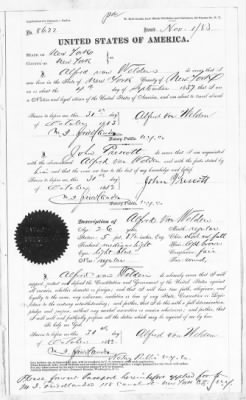 No. 8622
Issued Nov. 1/83
UNITED STATES OF AMERICA.
STATE OF New York
COUNTY OF New York
I, Alfred von Welden do swear that I was
born in the State of New York County of New York
on or about the 4th day of September 1857 that I am
a Native and loyal citizen of the United States of America, and am about to travel abroad
Sworn to before me this 30th day
of October 1883
Alfred von Welden
Notary Public N.Y. Co.
I, John Prescott do swear that I am acquainted
with the above named Alfred von Welden and with the facts stated by
him, and that the same are true to the best of my knowledge and belief.
Sworn to before me this 30th day
of October 1883
John Prescott
Notary Public N.Y. Co.
Description of Alfred von Welden
Age: 26 years
Mouth: regular
Stature: 5 feet
Chin:
Forehead: medium light
Hair:
Eyes: light blue
Complexion: fair
Nose: regular
Face: oval
I, Alfred von Welden do solemnly swear that I will
support, protect and defend the Constitution and Government of the United States against
all enemies, whether domestic or foreign; and that I will bear true faith, allegiance and
loyalty to the same, any ordinance, resolution or law of any State, Convention or Legislature
to the contrary notwithstanding; and further, that I do this with a full determination,
pledge and purpose, without any mental reservation or evasion whatsoever; and further, that
I will well and faithfully perform all the duties which may be required of me by law.
So help me God.
Sworn to before me this 30th day
of October 1883
Alfred von Welden
Notary Public N.Y. Co.
Please forward Passport herein before applied for to
New York City